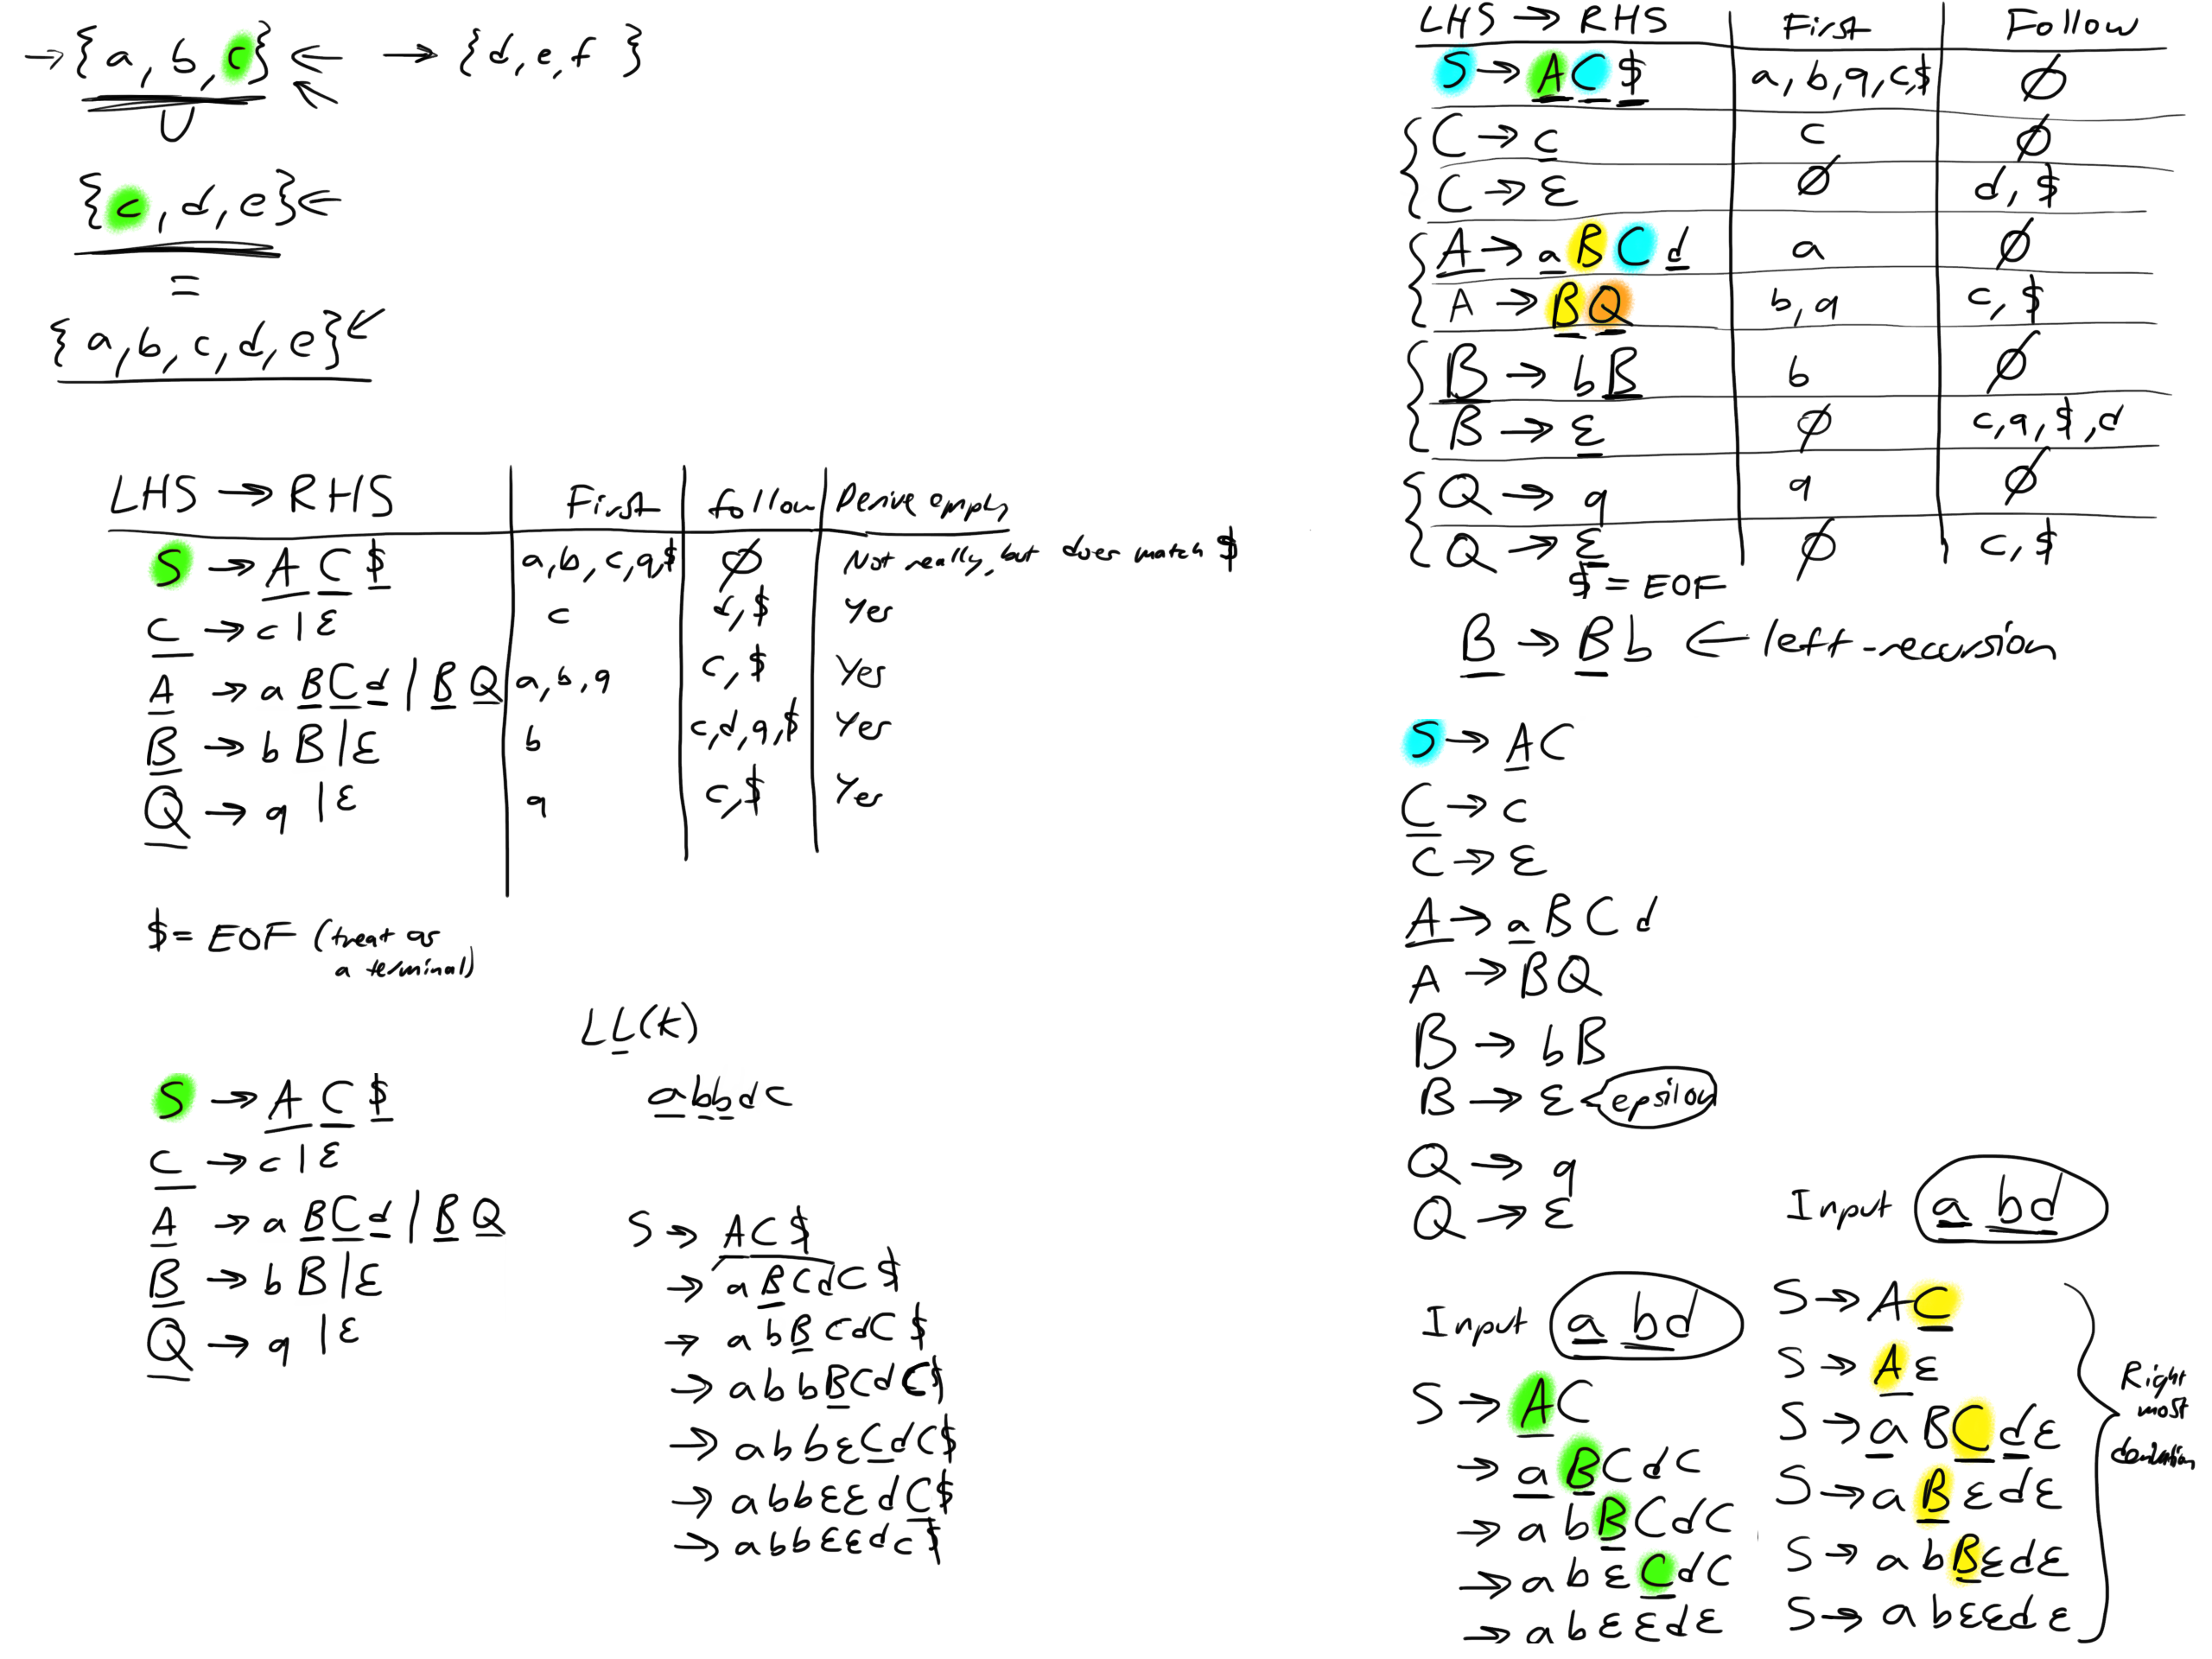 → { a, b, c } ← → { d, e, f }
U
{ c, d, e } ←
=
{ a, b, c, d, e } ↙
LHS → RHS First follow Derive empty
S → A C $ a, b, c, q, $ ∅ Not really, but does match $
C → c | ε c d, $ Yes
A → a B C d | B Q a, b, q c, $ Yes
B → b B | ε b c, d, q, $ Yes
Q → q | ε q c, $ Yes
$ = EOF (treat as
a terminal)
LL(k)
S → A C $
C → c | ε
A → a B C d | B Q
B → b B | ε
Q → q | ε
a b b d c
S → A C $
→ a B C d C $
→ a b B C d C $
→ a b b B C d C $
→ a b b ε C d C $
→ a b b ε ε d C $
→ a b b ε ε d c $
LHS → RHS First Follow
S → A C $ a, b, q, c, $ ∅
C → c c ∅
C → ε ∅ d, $
A → a B C d a ∅
A → B Q b, q c, $
B → b B b ∅
B → ε ∅ c, q, $, d
Q → q q ∅
Q → ε ∅ c, $
$ = EOF
B → B b ← left-recursion
S → A C
C → c
C → ε
A → a B C d
A → B Q
B → b B
B → ε epsilon
Q → q
Q → ε
Input a b d
S → A C
→ a B C d C
→ a b B C d C
→ a b ε C d C
→ a b ε ε d ε
Input a b d
S → A C
S → A ε
S → a B C d ε
S → a B ε d ε
S → a b B ε d ε
S → a b ε ε d ε
Right
most
derivation